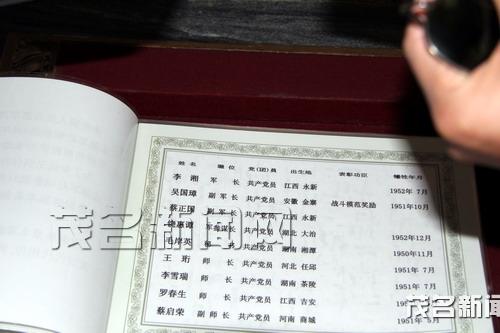 茂名新闻网
姓名 職位 党(团)員 出生地 表彰功臣 犧牲年月
李 湘 军 长 共产党员 江西 永新 1952年 7月
吴国璋 副 军 长 共产党员 安徽 金寨 战斗模范奖励 1951年10月
蔡正国 副 军 长 共产党员 江西 永新
饶惠谭 共产党员 湖北 大冶 1952年12月
毛岸英 共产党员 湖南 湘潭 1950年11月
王 珩 师 长 共产党员 河北 任邱 1951年 7月
李雪瑞 师 长 共产党员 湖南 茶陵 1951年 7月
罗春生 师 长 共产党员 江西 吉安
蔡启荣 副 师 长 共产党员 河南 商城 1951年 5月
茂名新闻网
茂名新闻